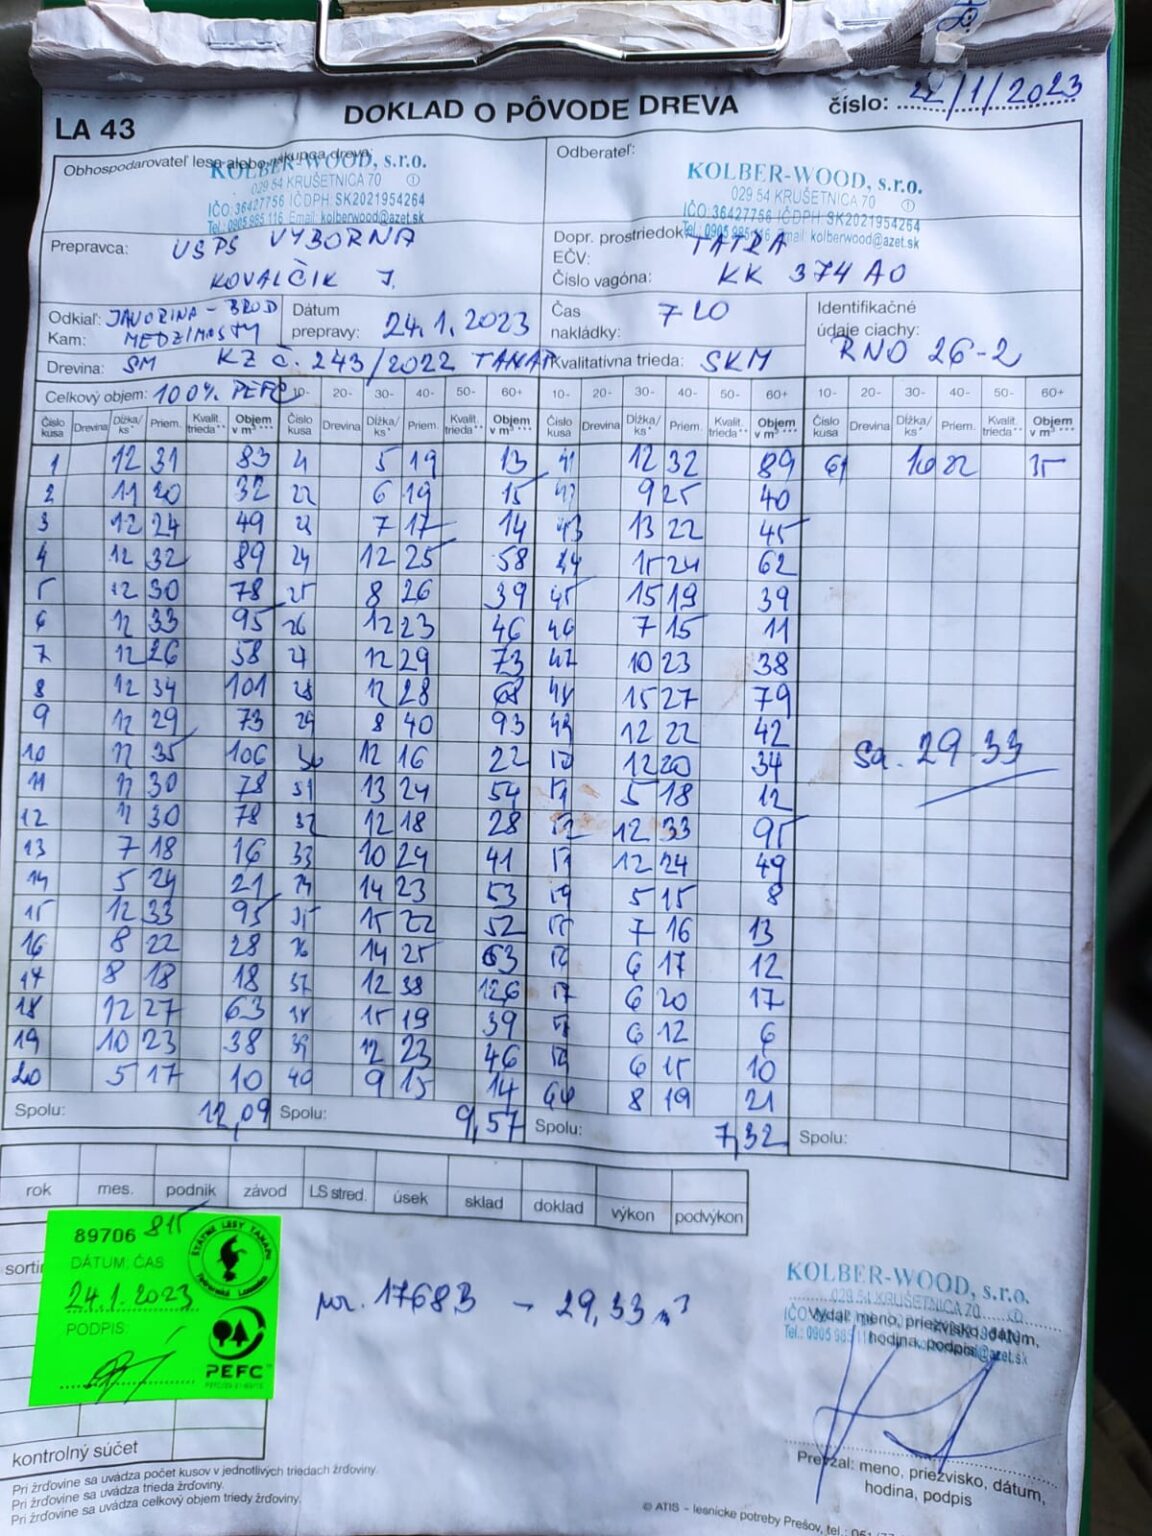 LA 43
DOKLAD O PÔVODE DREVA
číslo: 22/1/2023
Obhospodarovateľ lesa alebo nákupca dreva:
KOLBER-WOOD, s.r.o.
029 54 KRUŠETNICA 70 ①
IČO:36427756 IČDPH: SK2021954264
Tel.: 0905 985 116 Email: kolberwood@azet.sk
Odberateľ:
KOLBER-WOOD, s.r.o.
029 54 KRUŠETNICA 70 ①
IČO:36427756 IČDPH: SK2021954264
Tel.: 0905 985 116 Email: kolberwood@azet.sk
Prepravca: USPS VÝBORNÁ
KOVALČIK J.
Dopr. prostriedok: TATRA
EČV:
Číslo vagóna: KK 374AO
Odkiaľ: JAVORINA - BROD
Kam: MEDZIMOSTY
Dátum prepravy: 24.1.2023
Čas nakládky: 7 20
Identifikačné údaje ciachy: RNO 26-2
Drevina: SM KZ č. 243/2022 TANAP
Kvalitatívna trieda: SKM
Celkový objem: 100% PEFC
10- 20- 30- 40- 50- 60+ 10- 20- 30- 40- 50- 60+ 10- 20- 30- 40- 50- 60+
Číslo kusa Drevina Dĺžka/ ks* Priem. Kvalit. trieda** Objem v m³*** Číslo kusa Drevina Dĺžka/ ks* Priem. Kvalit. trieda** Objem v m³*** Číslo kusa Drevina Dĺžka/ ks* Priem. Kvalit. trieda** Objem v m³*** Číslo kusa Drevina Dĺžka/ ks* Priem. Kvalit. trieda** Objem v m³***
1 12 31 83 21 5 19 13 41 12 32 89 61 10 22 35
2 11 20 32 22 6 19 15 42 9 25 40
3 12 24 49 23 7 17 14 43 13 22 45
4 12 32 89 24 12 25 58 44 15 24 62
5 12 30 78 25 8 26 39 45 15 19 39
6 12 33 95 26 12 23 46 46 7 15 11
7 12 26 58 27 12 29 73 47 10 23 38
8 12 34 101 28 12 28 68 48 15 27 79
9 12 29 73 29 8 40 93 49 12 22 42
10 12 35 106 30 12 16 22 50 12 20 34
Sa. 29.33
11 12 30 78 31 13 24 54 51 5 18 12
12 12 30 78 32 12 18 28 52 12 33 95
13 7 18 16 33 10 24 41 53 12 24 49
14 5 24 21 34 14 23 53 54 5 15 8
15 12 33 95 35 15 22 52 55 7 16 13
16 8 22 28 36 14 25 63 56 6 17 12
17 8 18 18 37 12 38 126 57 6 20 17
18 12 27 63 38 15 19 39 58 6 12 6
19 10 23 38 39 12 23 46 59 6 15 10
20 5 17 10 40 9 15 14 60 8 19 21
Spolu: 12,09 Spolu: 9,57 Spolu: 7,32 Spolu:
rok mes. podnik závod LS stred. úsek sklad doklad výkon podvýkon
89706 815
DÁTUM: ČAS
24.1.2023
PODPIS:
ŠTÁTNE LESY TANAPU
PEFC
por. 17683 - 29,33 m³
KOLBER-WOOD, s.r.o.
029 54 KRUŠETNICA 70
Vydal: meno, priezvisko, dátum,
hodina, podpis
Prevzal: meno, priezvisko, dátum,
hodina, podpis
kontrolný súčet
Pri žrďovine sa uvádza počet kusov v jednotlivých triedach žrďoviny.
Pri žrďovine sa uvádza trieda žrďoviny.
Pri žrďovine sa uvádza celkový objem triedy žrďoviny.
© ATIS – lesnícke potreby Prešov, tel.: 051/77